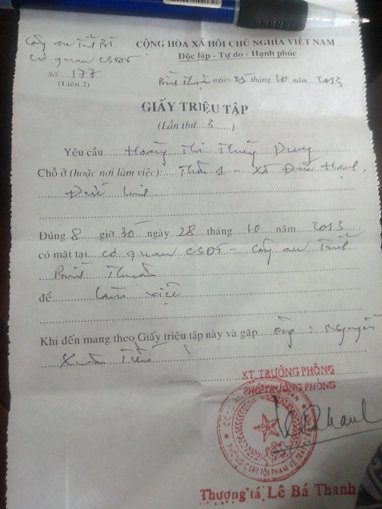 CỘNG HÒA XÃ HỘI CHỦ NGHĨA VIỆT NAM
Độc lập - Tự do - Hạnh phúc
Cơ quan CSĐT
Số 177
(Liên 2)
ngày 25 tháng 10 năm 2013
GIẤY TRIỆU TẬP
(Lần thứ 3)
Yêu cầu Hoàng Thị Thùy Dung
Chỗ ở (hoặc nơi làm việc): Thôn 1 - xã Đức Hạnh,
Đức Linh
Đúng 8 giờ 30 ngày 28 tháng 10 năm 2013
có mặt tại cơ quan CSĐT - Công an Tỉnh
Bình Thuận
để làm việc
Khi đến mang theo Giấy triệu tập này và gặp ông: Nguyễn
Xuân
KT TRƯỞNG PHÒNG
PHÓ TRƯỞNG PHÒNG
Thượng tá, Lê Bá Thanh